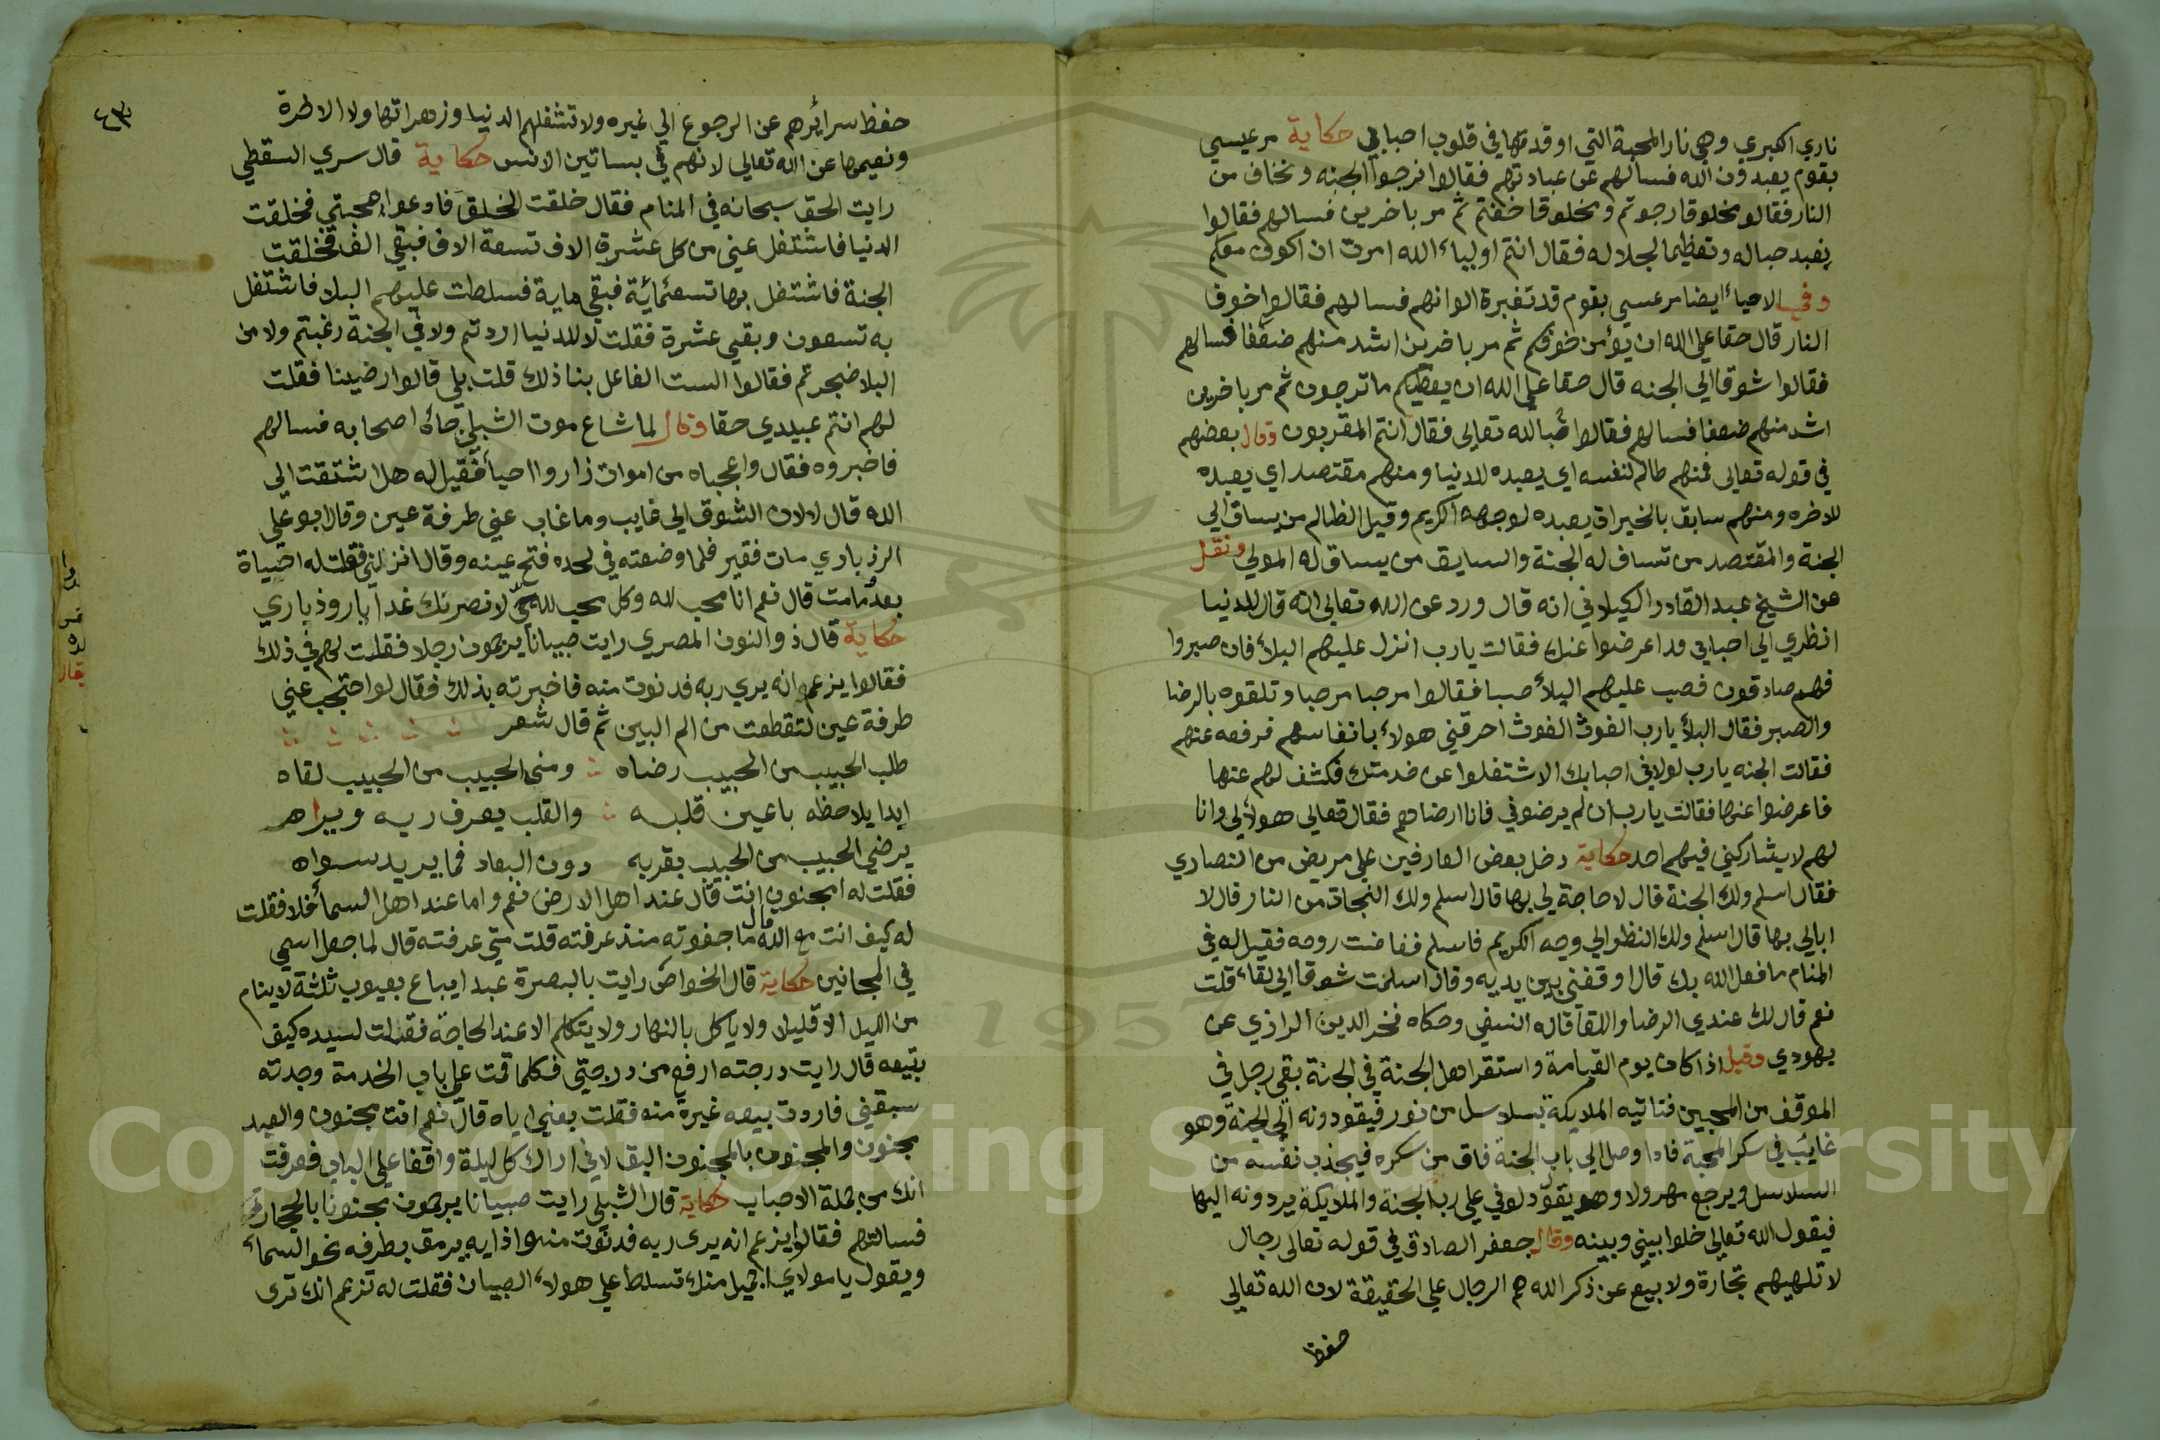 ناري الكبري وهي نار المحبة التي اوقدتها في قلوب احبابي حكاية مر عيسي
بقوم يعبدون الله فسالهم عن عبادتهم فقالوا نرجوا الجنه ونخاف من
النار فقال مخلوقا رجوتم ومخلوقا خفتم ثم مر باخرين فسالهم فقالوا
نعبد حباله وتعظيما لجلاله فقال انتم اولياء الله امرت ان اكون معكم
وفي الاحياء ايضا مر عيسي بقوم قد تغيرة الوانهم فسالهم فقالوا خوف
النار قال حقا علي الله ان يؤمن خوفكم ثم مر باخرين اشد منهم ضعفا فسالهم
فقالوا شوقا الي الجنه قال حقا علي الله ان يعطيكم ما ترجون ثم مر باخرين
اشد منهم ضعفا فسالهم فقالوا حبا لله تعالي فقال انتم المقربون وقال بعضهم
في قوله تعالى فمنهم ظالم لنفسه اي يعبده للدنيا ومنهم مقتصد اي يعبده
للاخره ومنهم سابق بالخيرات يعبده لوجهه الكريم وقيل الظالم من يساق الي
الجنة والمقتصد من تساق له الجنة والسابق من يساق له المولي ونقل
عن الشيخ عبد القادر الكيلاني انه قال ورد عن الله تعالي انه قال للدنيا
انظري الي احبابي قد اعرضوا عنك فقالت يارب انزل عليهم البلاء فان صبروا
فهم صادقون فصب عليهم البلاء صبا فقالوا مرحبا مرحبا وتلقوه بالرضا
والصبر فقال البلاء يارب الغوث الغوث احرقني هولاء بانفاسهم فرفعه عنهم
فقالت الجنه يارب لولاني احبابك الاشتغلوا عن خدمتك فكشف لهم عنها
فاعرضوا عنها فقالت يارب ان لم يرضوني فانا ارضاهم فقال تعالي هولاء لي وانا
لهم لا يشاركني فيهم احد حكاية دخل بعض العارفين علي مريض من النصاري
فقال اسلم ولك الجنة قال لا حاجة لي بها قال اسلم ولك النجاة من النار قال لا
ابالي بها قال اسلم ولك النظر الي وجه الكريم فاسلم ففاضت روحه فقيل له في
المنام ما فعل الله بك قال اوقفني بين يديه وقال اسلمت شوقا الي لقاء قلت
نعم قال لك عندي الرضا واللقا قاله النسفي وحكاه فخر الدين الرازي عن
يهودي وقيل اذا كان يوم القيامة واستقر اهل الجنة في الجنة بقي رجل في
الموقف من المحبين فتاتيه الملايكة بسلاسل من نور فيقودونه الي الجنة وهو
غايب في سكر المحبة فاذا وصل الي باب الجنة فاق من سكره فيجذب نفسه من
السلاسل ويرجع مهرولا وهو يقول دلوني علي رب الجنة والملايكة يردونه اليها
فيقول الله تعالي خلوا بيني وبينه وقال جعفر الصادق في قوله تعالى رجال
لا تلهيهم تجارة ولا بيع عن ذكر الله هم الرجال علي الحقيقة لان الله تعالي
حفظ
٤٣
حفظ سرائرهم عن الرجوع الي غيره ولا تشغلهم الدنيا وزهراتها ولا الاخرة
ونعيمها عن الله تعالي لانهم في بساتين الانس حكاية قال سري السقطي
رايت الحق سبحانه في المنام فقال خلقت الخلق فادعوا محبتي فخلقت
الدنيا فاشتغل عني من كل عشرة الاف تسعة الاف فبقي الف فخلقت
الجنة فاشتغل بها تسعمائية فبقي ماية فسلطت عليهم البلا فاشتغل
به تسعون وبقي عشرة فقلت لا للدنيا اردتم ولا في الجنة رغبتم ولا من
البلا ضجرتم فقالوا الست الفاعل بنا ذلك قلت بلي قالوا رضينا فقلت
لهم انتم عبيدي حقا وقال لما شاع موت الشبلي جاءه اصحابه فسالهم
فاخبروه فقال واعجباه من اموات زاروا احياء فقيل له هل اشتقت الي
الله قال لا لان الشوق الي غايب وما غاب عني طرفة عين وقال ابو علي
الرذباري مات فقير فلما وضعته في لحده فتح عينه وقال انزلني فقلت له احياة
بعد مامت قال نعم انا محب لله وكل محب لله حي لانصرنك غدا يا روذباري
حكاية قال ذو النون المصري رايت صبيانا يرجمون رجلا فقلت لهم في ذلك
فقالوا يزعم انه يري ربه فدنوت منه فاخبرته بذلك فقال لو احتجب عني
طرفة عين لتقطعت من الم البين ثم قال شعر
طلب الحبيب من الحبيب رضاه ومنى الحبيب من الحبيب لقاه
ابدا يلاحظه باعين قلبه والقلب يعرف ربه ويراه
يرضي الحبيب من الحبيب بقربه دون البعاد فما يريد سواه
فقلت له امجنون انت قال عند اهل الارض نعم واما عند اهل السماء فلا فقلت
له كيف انت مع الله قال ما جفوته منذ عرفته قلت متي عرفته قال لما جعل اسمي
في المجانين حكاية قال الخواص رايت بالبصرة عبدا يباع بعيوب ثلثة لا ينام
من الليل الا قليلا ولا ياكل بالنهار ولا يتكلم الا عند الحاجة فقلت لسيده كيف
بتيعه قال رايت درجته ارفع من درجتي فكلما قمت علي باب الخدمة وجدته
سبقني فاردت بيعه غيرة منه فقلت بعني اياه قال نعم انت مجنون والعبد
مجنون والمجنون بالمجنون اليق لاني اراك كل ليلة واقفا علي الباب فعرفت
انك من جملة الاحباب حكاية قال الشبلي رايت صبيانا يرجمون مجنونا بالحجارة
فسالتهم فقالوا يزعم انه يرى ربه فدنوت منه واذا به يرمق بطرفه نحو السماء
ويقول يا مولاي اجميل منك تسلط علي هولاء الصبيان فقلت له تزعم انك ترى
Copyright © King Saud University
1957